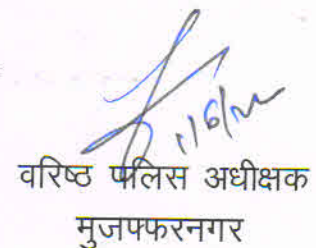 वरिष्ठ पुलिस अधीक्षक
मुजफ्फरनगर